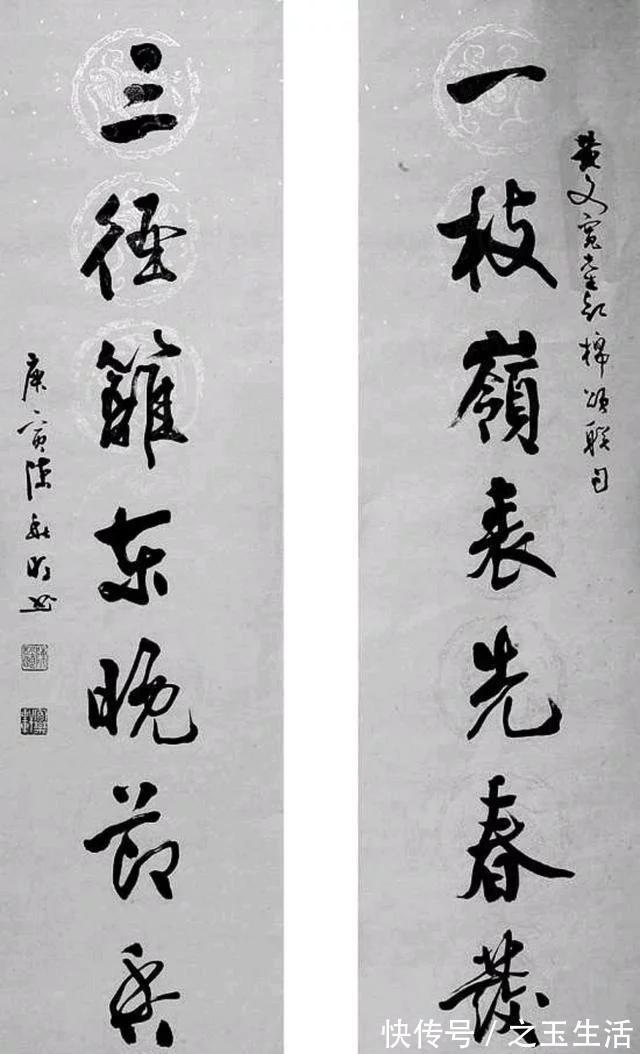 黄文寬 棉頌聯句
一枝嶺表先春發
三徑籬東晚節香
庚寅陳
快传号/之玉生活